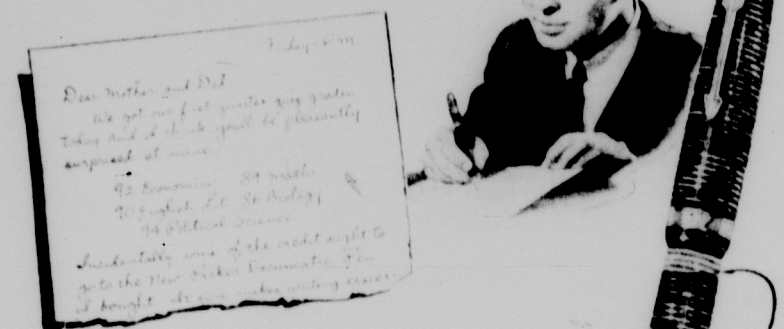 Friday - P.M.
Dear Mother and Dad
We got our first quarter quiz grades
today and I think you'll be pleasantly
surprised at mine
92 Economics 89 Math
90 English Lit 86 Biology
94 Political Science
Incidentally some of the credit ought to
go to the New Parker Vacumatic Pen
I bought. It sure makes writing easier